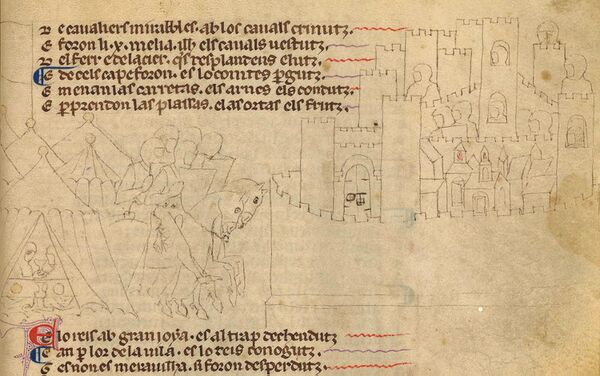 De caualiers mirables. ab los cauals crinutz.
E foron li .x. melia. ab els cauals uestutz.
Del ferr e delacier. q̃s resplandens elutz.
E de cels cape foron. es lo comtes p̃gutz.
E menan las carretas. els arnes els condutz.
E perprendon las plassas. elas ortas els frutz.
E lo reis ab gran ioya. es al trap dechendutz
E an p̃ lor de la uila. es lo reis conogutz
E es non es merauilha. si foron desperdutz